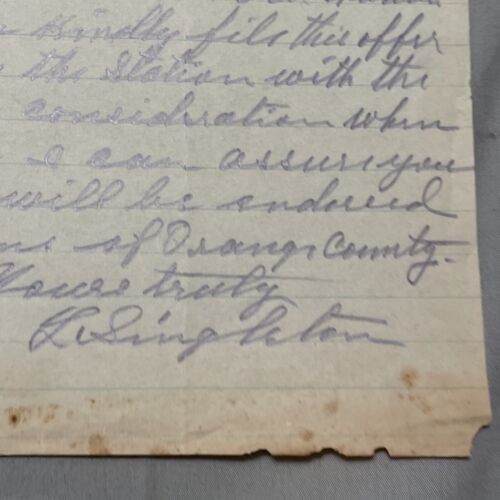 Kindly file this offer
the Station with the
consideration when
I can assure you
will be endorced
of Orange County.
Yours truly
L. Singleton